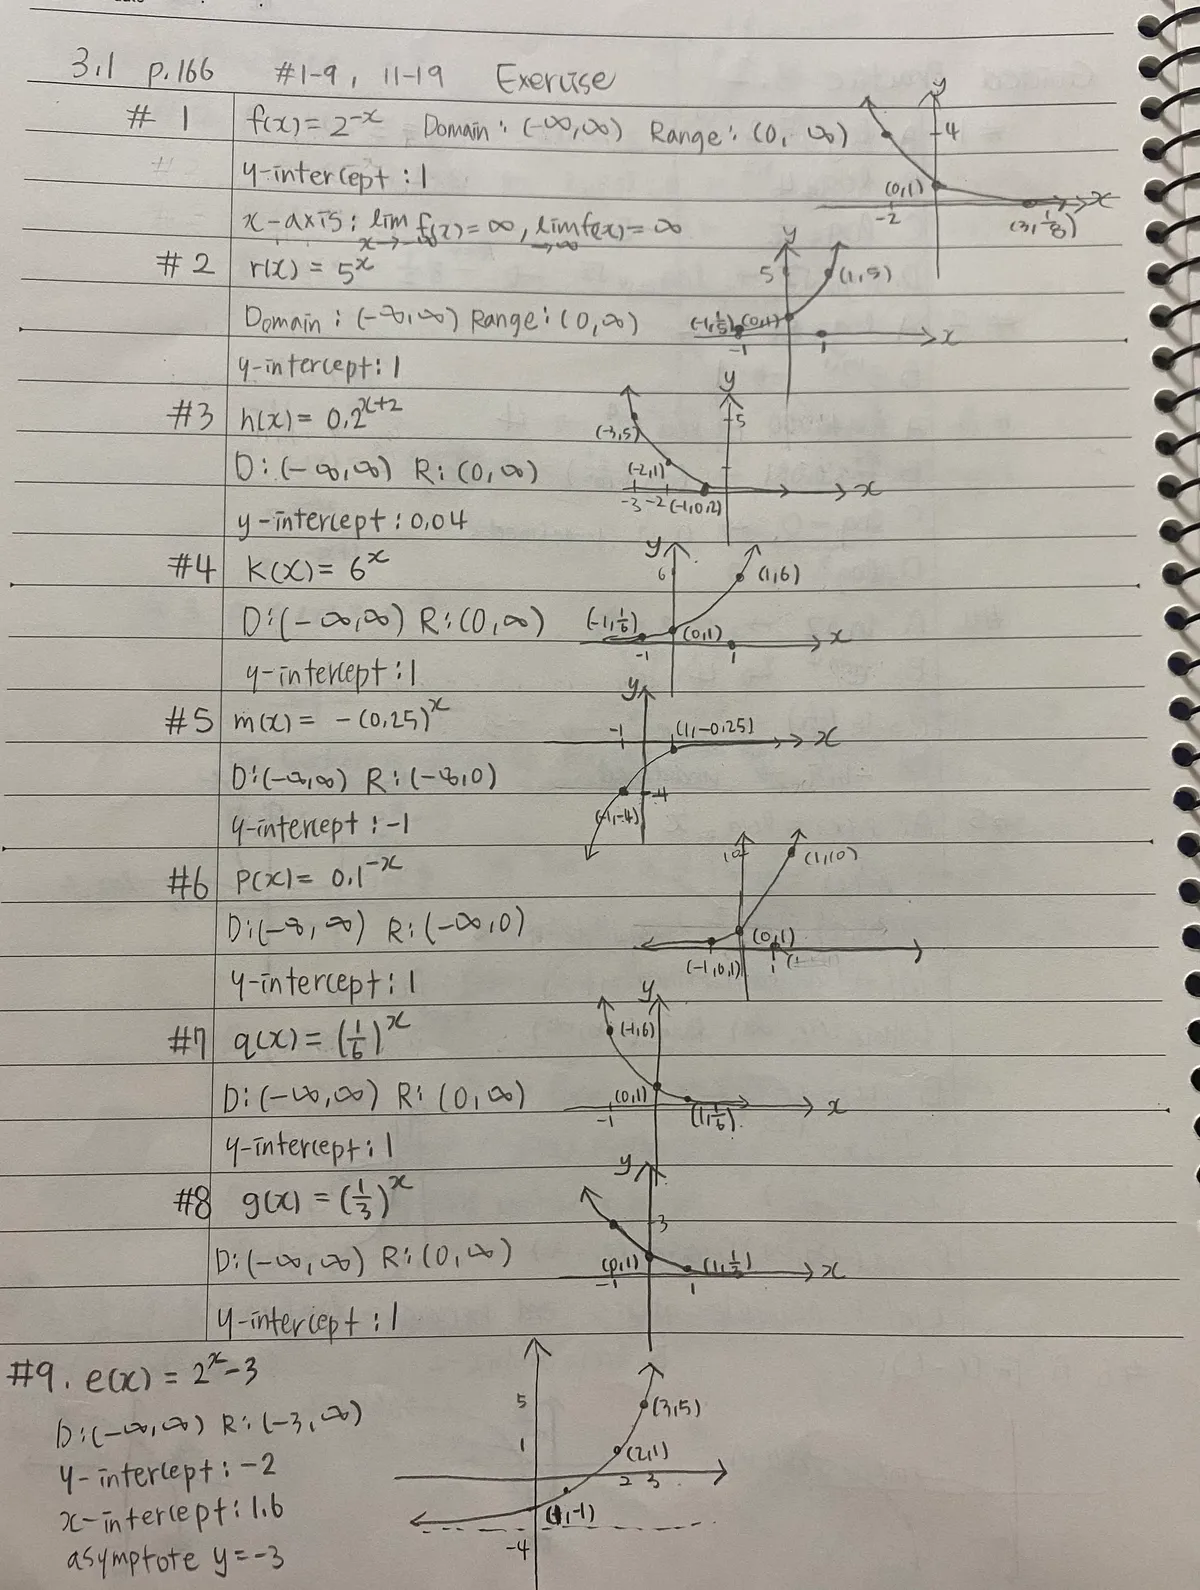 3.1 p.166 #1-9, 11-19 Exercise
#1 f(x)=2^-x Domain: (-∞,∞) Range: (0, ∞)
y-intercept: 1
x-axis: lim x→-∞ f(x)=∞, lim →∞ f(x)=∞
y
4
(0,1)
-2
x
(3, 1/8)
#2 r(x) = 5^x
Domain: (-∞,∞) Range: (0,∞)
y-intercept: 1
y
5
(1,5)
(-1, 1/5) (0,1)
-1
1
x
#3 h(x) = 0.2^x+2
D: (-∞,∞) R: (0,∞)
y-intercept: 0.04
y
5
(-3,5)
(-2,1)
-3 -2 (-1,0.2)
x
#4 K(x) = 6^x
D: (-∞,∞) R: (0,∞)
y-intercept: 1
y
6
(1,6)
(-1, 1/6)
(0,1)
-1
1
x
#5 m(x) = -(0.25)^x
D: (-∞,∞) R: (-∞,0)
y-intercept: -1
y
-1
(1,-0.25)
x
-4
(-1,-4)
#6 P(x) = 0.1^-x
D: (-∞, ∞) R: (-∞,0)
y-intercept: 1
10
(1,10)
(0,1)
(-1,0.1)
1
#7 q(x) = (1/6)^x
D: (-∞,∞) R: (0,∞)
y-intercept: 1
y
(-1,6)
(0,1)
-1
(1, 1/6)
x
#8 g(x) = (1/3)^x
D: (-∞,∞) R: (0,∞)
y-intercept: 1
y
3
(0,1)
(1, 1/3)
-1
1
x
#9. e(x) = 2^x-3
D: (-∞,∞) R: (-3,∞)
y-intercept: -2
x-intercept: 1.6
asymptote y=-3
5
(3,5)
1
(2,1)
2 3
(1,-1)
-4